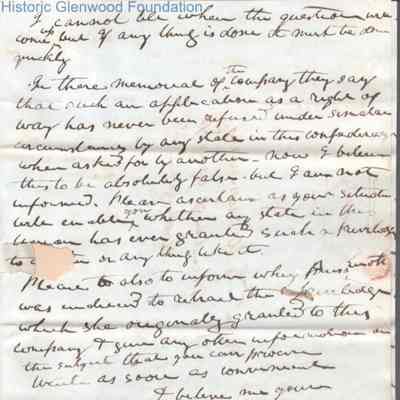 Historic Glenwood Foundation
I cannot be when the question
come up but if any thing is done it must be done
quickly
In there memorial of the company they say
that such an application as a right of
way has never been refused under similar
circumstances by any state in this confederacy
when asked for by another - now I believe
this to be absolutely false - but I am not
informed. Please ascertain as your situation
will enable you whether any state in the
union has ever granted such a privilege
to or any thing like it.
Please to also to inform why
was induced to retract the privilege
which she originally granted to this
company & give any other information on
the subject that you can procure
Write as soon as convenient
& believe me your